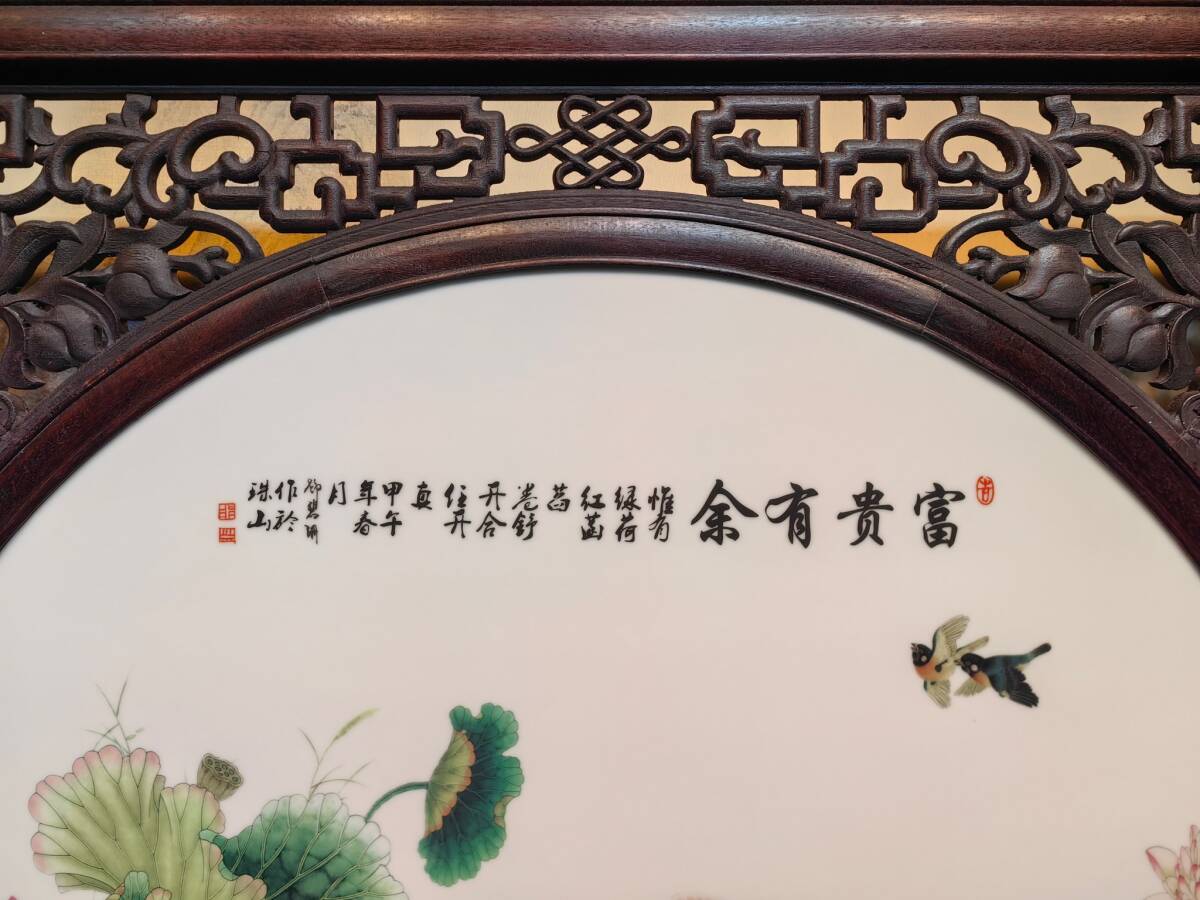 富贵有余
惟有
绿荷
红菡
萏
卷舒
开合
任
真
甲午
年春
月
碧珊
作於
珠山